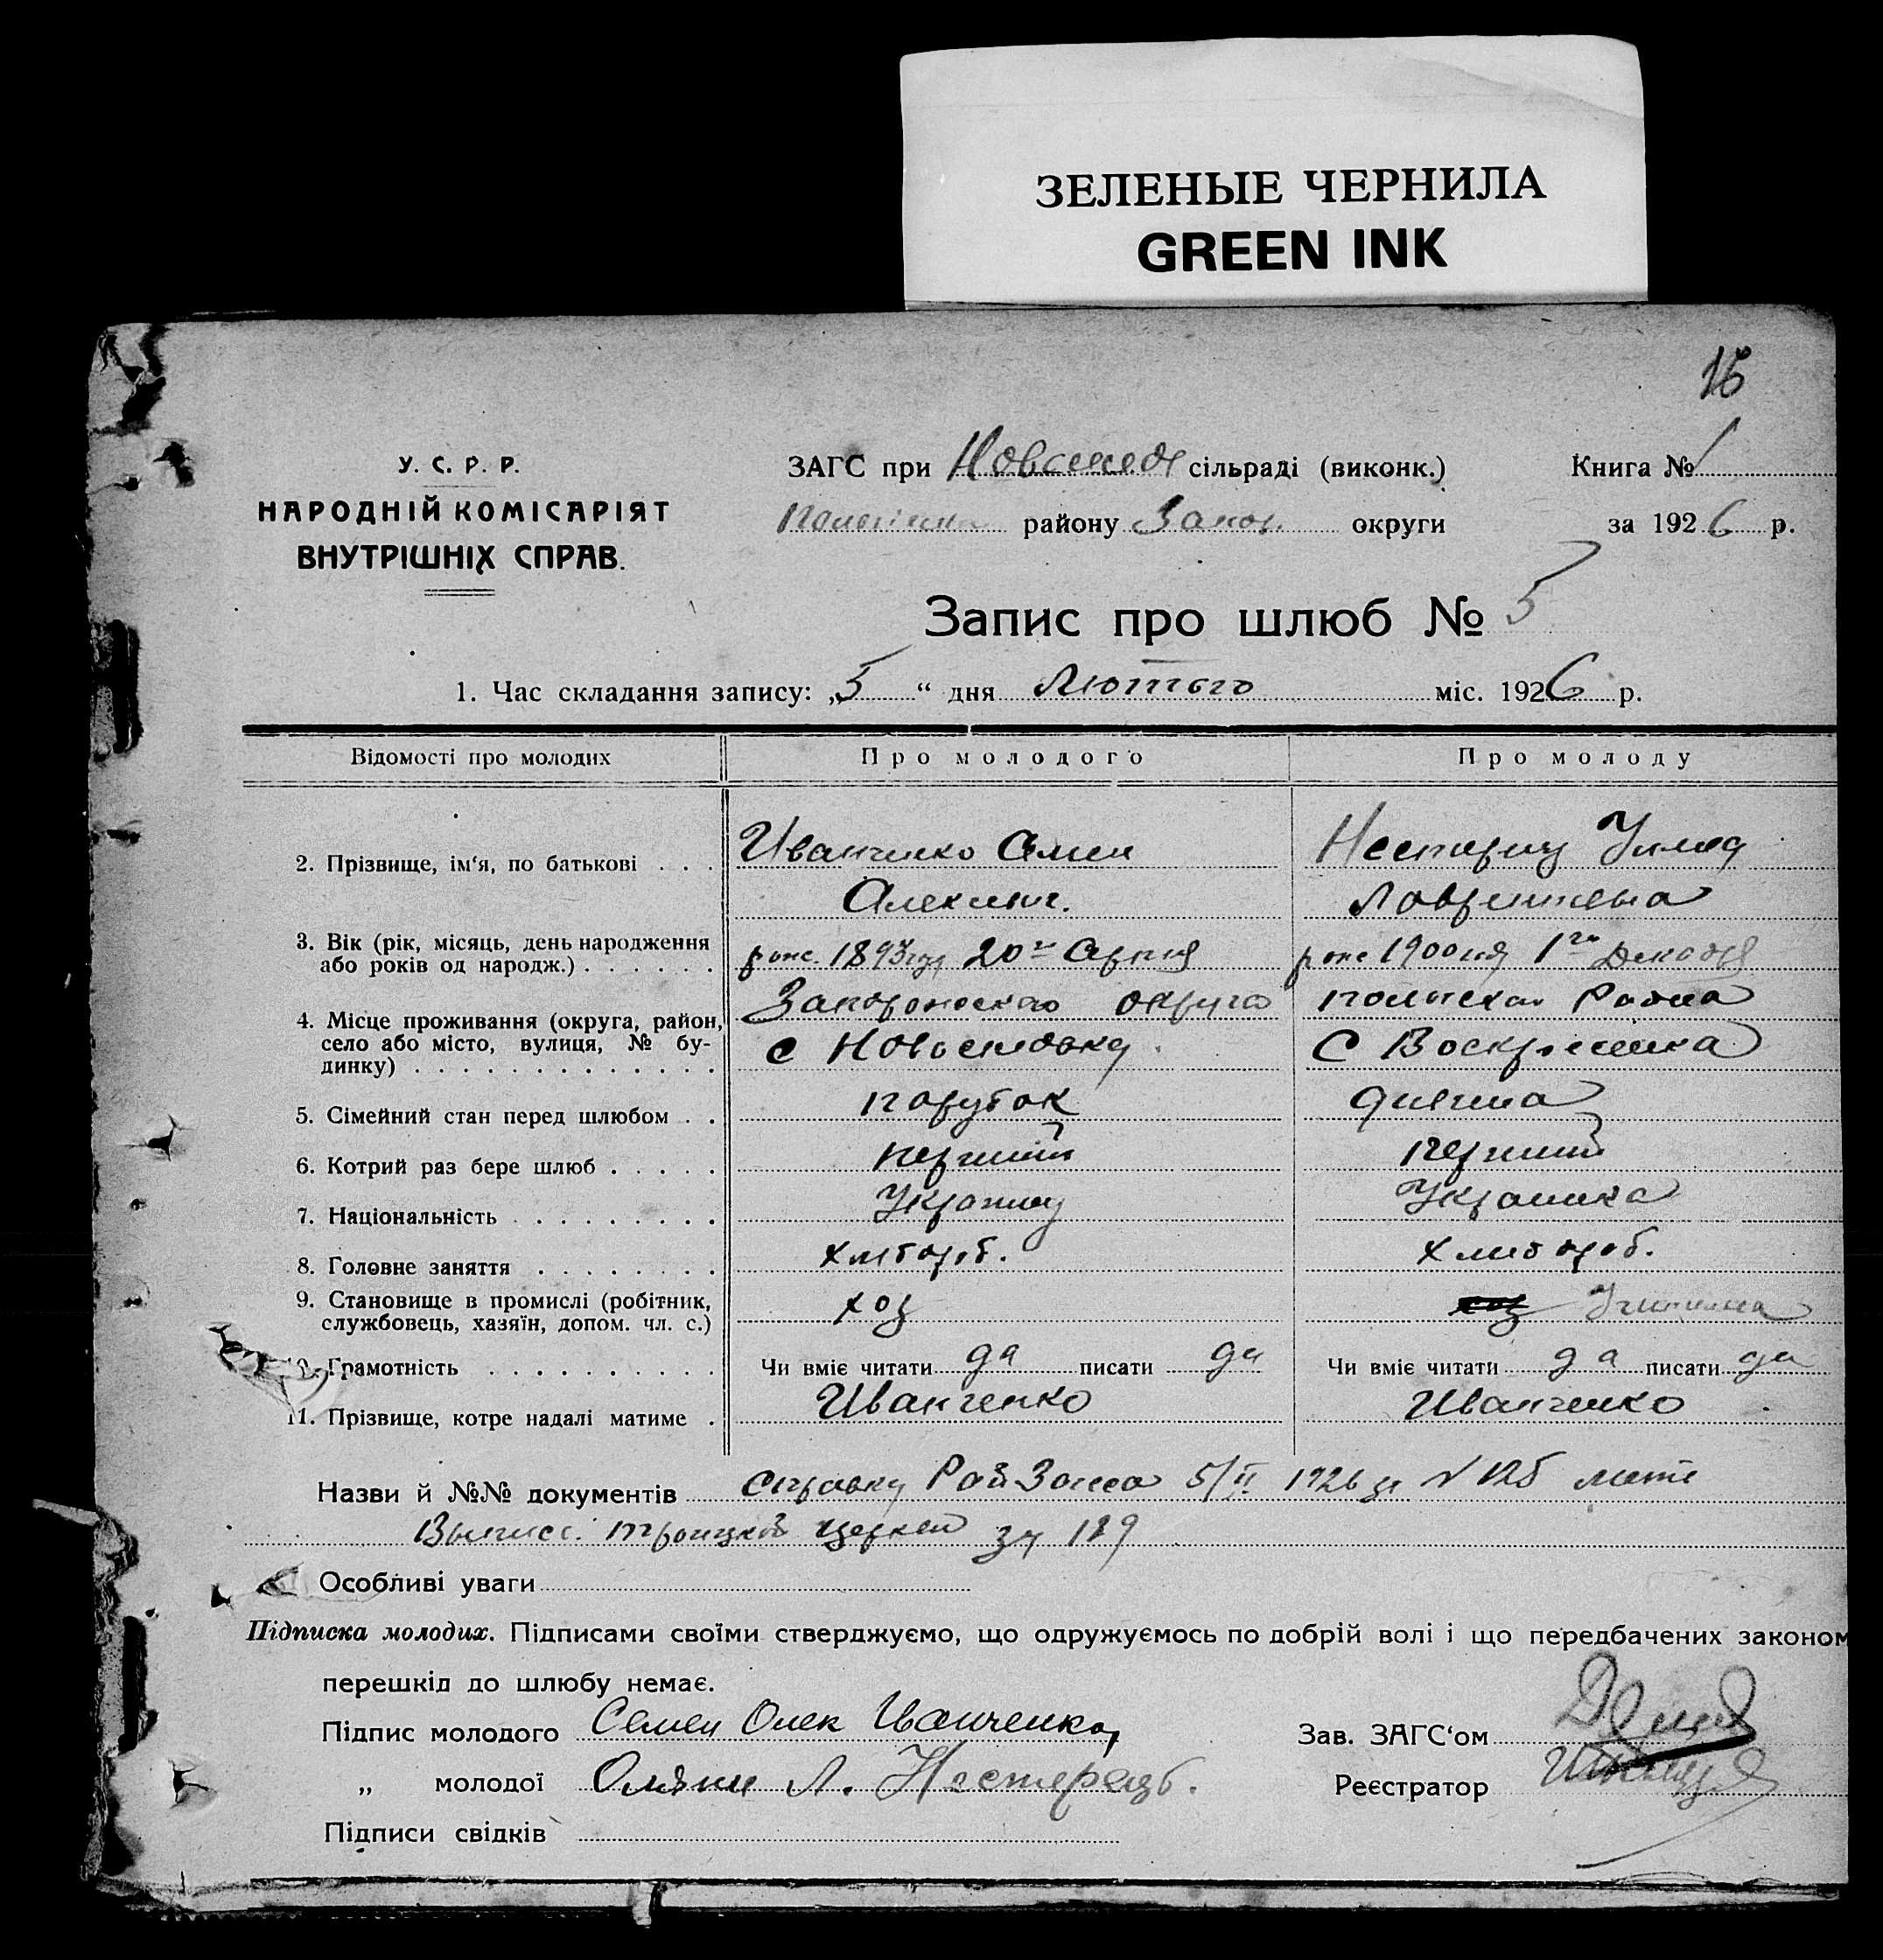 ЗЕЛЕНЫЕ ЧЕРНИЛА
GREEN INK
16
У. С. Р. Р.
НАРОДНІЙ КОМІСАРІЯТ
ВНУТРІШНІХ СПРАВ.
ЗАГС при сільраді (виконк.)
району Запор. округи
Книга № 1
за 1926 р.
Запис про шлюб № 5
1. Час складання запису: „5“ дня Лютого міс. 1926 р.
Відомості про молодих
Про молодого
Про молоду
2. Прізвище, ім‘я, по батькові . . .
Иванченко Семен
3. Вік (рік, місяць, день народження
або років од народж.) . . . . . .
1893 20
1900 1
4. Місце проживання (округа, район,
село або місто, вулиця, № бу-
динку) . . . . . . . . . . . . .
округа
Района
с
С Воскресенка
5. Сімейний стан перед шлюбом . .
парубок
дивчина
6. Котрий раз бере шлюб . . . . .
перший
перший
7. Національність . . . . . . . . .
Украинец
Украинка
8. Головне заняття . . . . . . . .
хлибороб.
хлибороб.
9. Становище в промислі (робітник,
службовець, хазяїн, допом. чл. с.)
хоз
хоз
10. Грамотність . . . . . . . . . .
Чи вміє читати да писати да
Чи вміє читати да писати да
11. Прізвище, котре надалі матиме .
Иванченко
Иванченко
Назви й №№ документів Справка РайЗагса 5/II 1926 №
Троицкой церкви за 189
Особливі уваги
Підписка молодих. Підписами своїми стверджуємо, що одружуємось по добрій волі і що передбачених законом
перешкід до шлюбу немає.
Підпис молодого Семен Олек Иванченко
„ молодої Л. Нестерець.
Підписи свідків
Зав. ЗАГС‘ом
Реєстратор